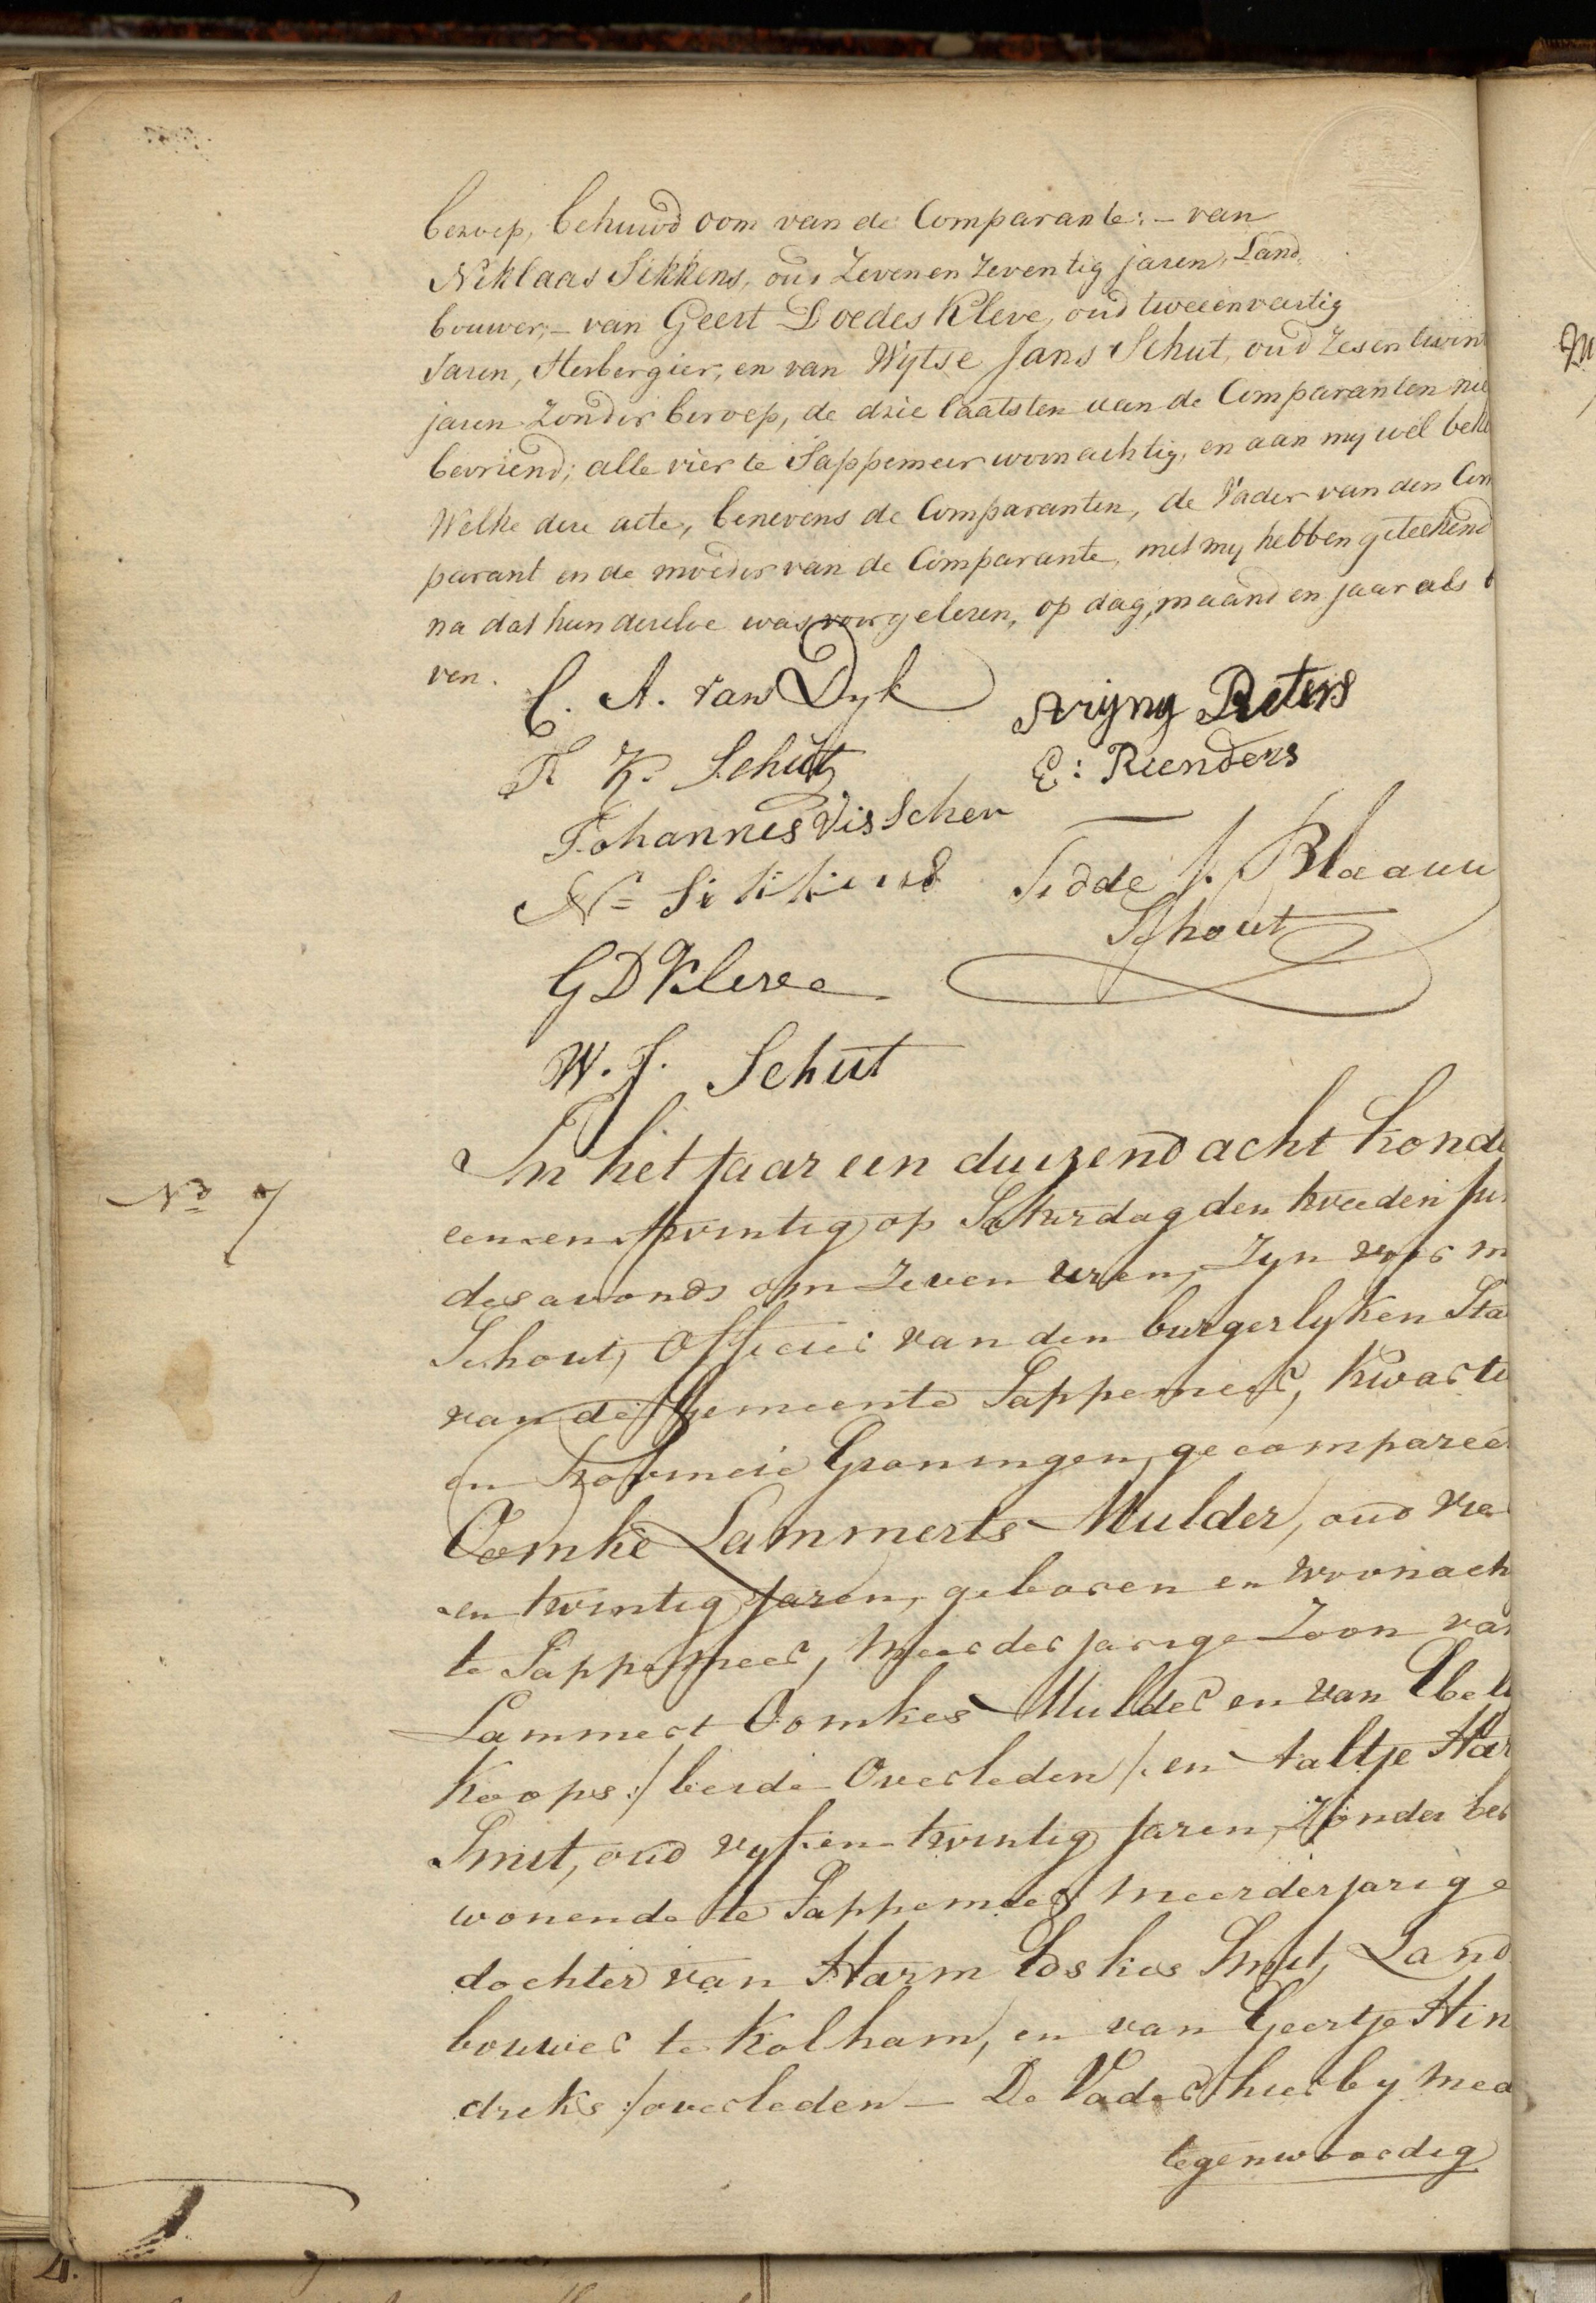 beroep, behuwd oom van de Comparante; – van
Niklaas Sikkens, oud Zeven en Zeventig jaren, Land
bouwer; – van Geert Doedes Kleve, oud tweeenveertig
Jaren, Herbergier, en van Wijtse Jans Schut, oud Zesentwint
jaren Zonder beroep, de drie laatsten van de Comparanten nie
bevriend; alle vier te Sappemeer woonachtig, en aan mij wel beke
Welke deze acte, benevens de Comparanten, de Vader van den Com
parant en de moeder van de Comparante, met mij hebben geteekend
na dat hun dezelve was voorgelezen, op dag, maand en jaar als b
ven.
C. A. van Dyk
Arijng Pieters
K. Schut
E: Reenders
Johannes Visscher
Ns Sikkens
Sidde J. Blaauw
Schout
G D Kleve
W. J. Schut
No 7
In het Jaar een duizend acht honde
een en twintig op Saturdag den tweeden Ju
des avonds om Zeven uren, Zyn voor m
Schout, Officier van den burgerlyken Sta
van de Gemeente Sappemeer, Kwartie
en Provincie Groningen, gecompareer
Oomke Lammerts Mulder, oud vier
en twintig Jaren, geboren en woonach
te Sappemeer, Meerderjarige Zoon van
Lammert Oomkes Mulder en van Ebel
Koops :/ beide Overleden /: en Aaltje Har
Smit, oud vyf en twintig Jaren, Zonder ber
wonende te Sappemeer Meerderjarige
dochter van Harm Edskes Smit, Land
bouwer te Kolham, en van Geertje Hin
dreks :/ overleden – De Vader hier by mede
tegenwoordig